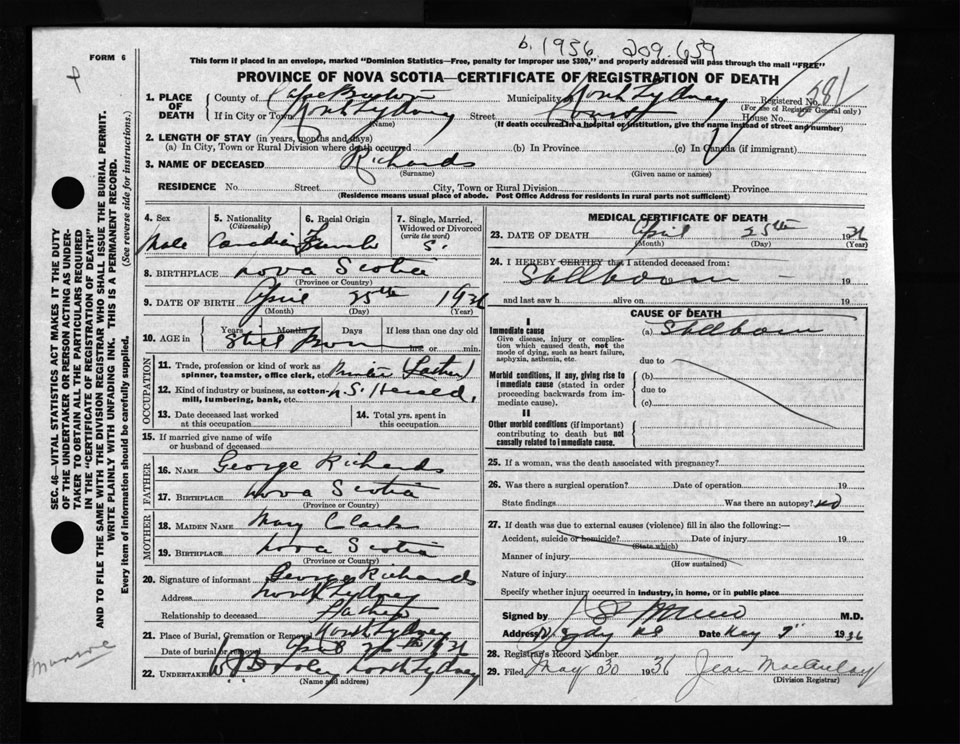 b. 1936 209.659
FORM 6
This form if placed in an envelope, marked "Dominion Statistics—Free, penalty for improper use $300," and properly addressed will pass through the mail "FREE"
PROVINCE OF NOVA SCOTIA—CERTIFICATE OF REGISTRATION OF DEATH
SEC. 46—VITAL STATISTICS ACT MAKES IT THE DUTY
OF THE UNDERTAKER OR PERSON ACTING AS UNDER-
TAKER TO OBTAIN ALL THE PARTICULARS REQUIRED
IN THE "CERTIFICATE OF REGISTRATION OF DEATH"
AND TO FILE THE SAME WITH THE DIVISION REGISTRAR WHO SHALL ISSUE THE BURIAL PERMIT.
WRITE PLAINLY WITH UNFADING INK. THIS IS A PERMANENT RECORD.
Every item of information should be carefully supplied. (See reverse side for instructions.)
Munroe
1. PLACE OF DEATH County of Cape Breton Municipality North Sydney Registered No. 581
(For use of Registrar General only)
If in City or Town North Sydney Street House No.
(Name) (If death occurred in a hospital or institution, give the name instead of street and number)
2. LENGTH OF STAY (in years, months and days)
(a) In City, Town or Rural Division where death occurred (b) In Province (c) In Canada (if immigrant)
3. NAME OF DECEASED Richards
(Surname) (Given name or names)
RESIDENCE No. Street City, Town or Rural Division Province
(Residence means usual place of abode. Post Office Address for residents in rural parts not sufficient)
4. Sex 5. Nationality (Citizenship) 6. Racial Origin 7. Single, Married, Widowed or Divorced (write the word)
Male Canadian French S.
8. BIRTHPLACE Nova Scotia
(Province or Country)
9. DATE OF BIRTH April 25th 1936
(Month) (Day) (Year)
10. AGE in Years Months Days If less than one day old
Still Born hrs. or min.
OCCUPATION
11. Trade, profession or kind of work as spinner, teamster, office clerk, etc. (Father)
12. Kind of industry or business, as cotton-mill, lumbering, bank, etc. N.S. Herald.
13. Date deceased last worked at this occupation 14. Total yrs. spent in this occupation
15. If married give name of wife or husband of deceased
FATHER
16. NAME George Richards
17. BIRTHPLACE Nova Scotia
(Province or Country)
MOTHER
18. MAIDEN NAME May Clark
19. BIRTHPLACE Nova Scotia
(Province or Country)
20. Signature of informant George Richards
Address North Sydney
Relationship to deceased Father
21. Place of Burial, Cremation or Removal North Sydney
Date of burial or removal April 26th 1936
22. UNDERTAKER North Sydney
(Name and address)
MEDICAL CERTIFICATE OF DEATH
23. DATE OF DEATH April 25th 1936
(Month) (Day) (Year)
24. I HEREBY CERTIFY that I attended deceased from:
Stillborn 19
and last saw h alive on 19
CAUSE OF DEATH
I
Immediate cause (a) Stillborn
Give disease, injury or complication which caused death, not the mode of dying, such as heart failure, asphyxia, asthenia, etc.
due to
Morbid conditions, if any, giving rise to immediate cause (stated in order proceeding backwards from immediate cause).
(b)
due to
(c)
II
Other morbid conditions (if important) contributing to death but not causally related to immediate cause.
25. If a woman, was the death associated with pregnancy?
26. Was there a surgical operation? Date of operation 19
State findings Was there an autopsy? No
27. If death was due to external causes (violence) fill in also the following:—
Accident, suicide or homicide? Date of injury 19
(State which)
Manner of injury
(How sustained)
Nature of injury
Specify whether injury occurred in industry, in home, or in public place
Signed by M.D.
Address N. Sydney NS Date 1936
28. Registrar's Record Number
29. Filed May 30 1936 Jean MacAulay
(Division Registrar)